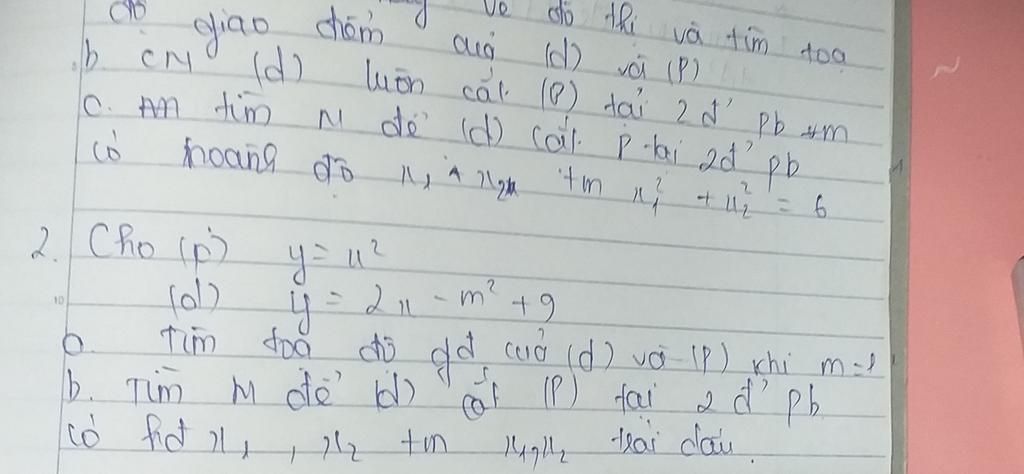 độ giao điểm của (d) và (P) vẽ đồ thị và tìm toạ
b CM (d) luôn cắt (P) tại 2đ' pb
c. tìm M để (d) cắt P tại 2đ' pb
có hoành độ x₁, x₂ tm x₁² + x₂² = 6
2. Cho (P) y = x²
(d) y = 2x - m² + 9
a. Tìm toạ độ gđ của (d) và (P) khi m=1
b. Tìm M để (d) cắt (P) tại 2đ' pb
có hđ x₁, x₂ tm x₁, x₂ trái dấu.